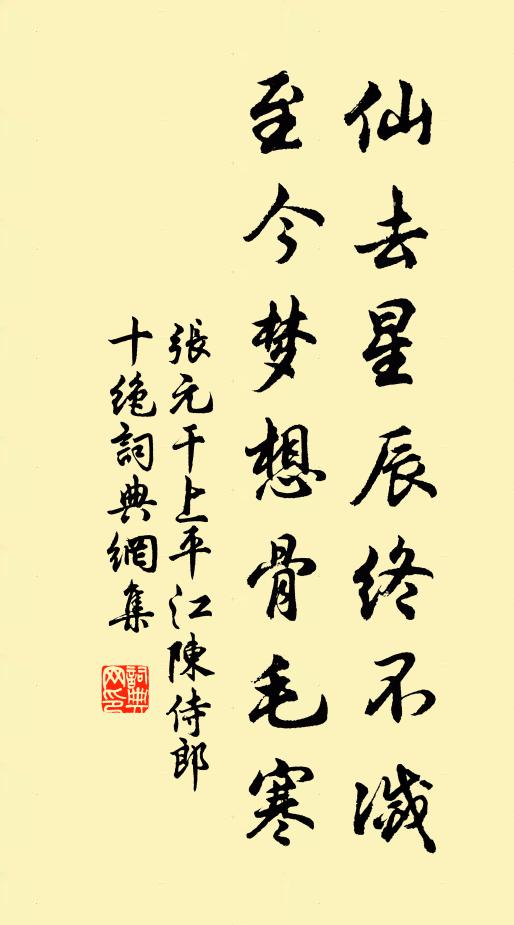 仙去星辰终不滅
至今梦想骨毛寒
張元干上平江陳侍郎
十绝詞典網集
詞典网印